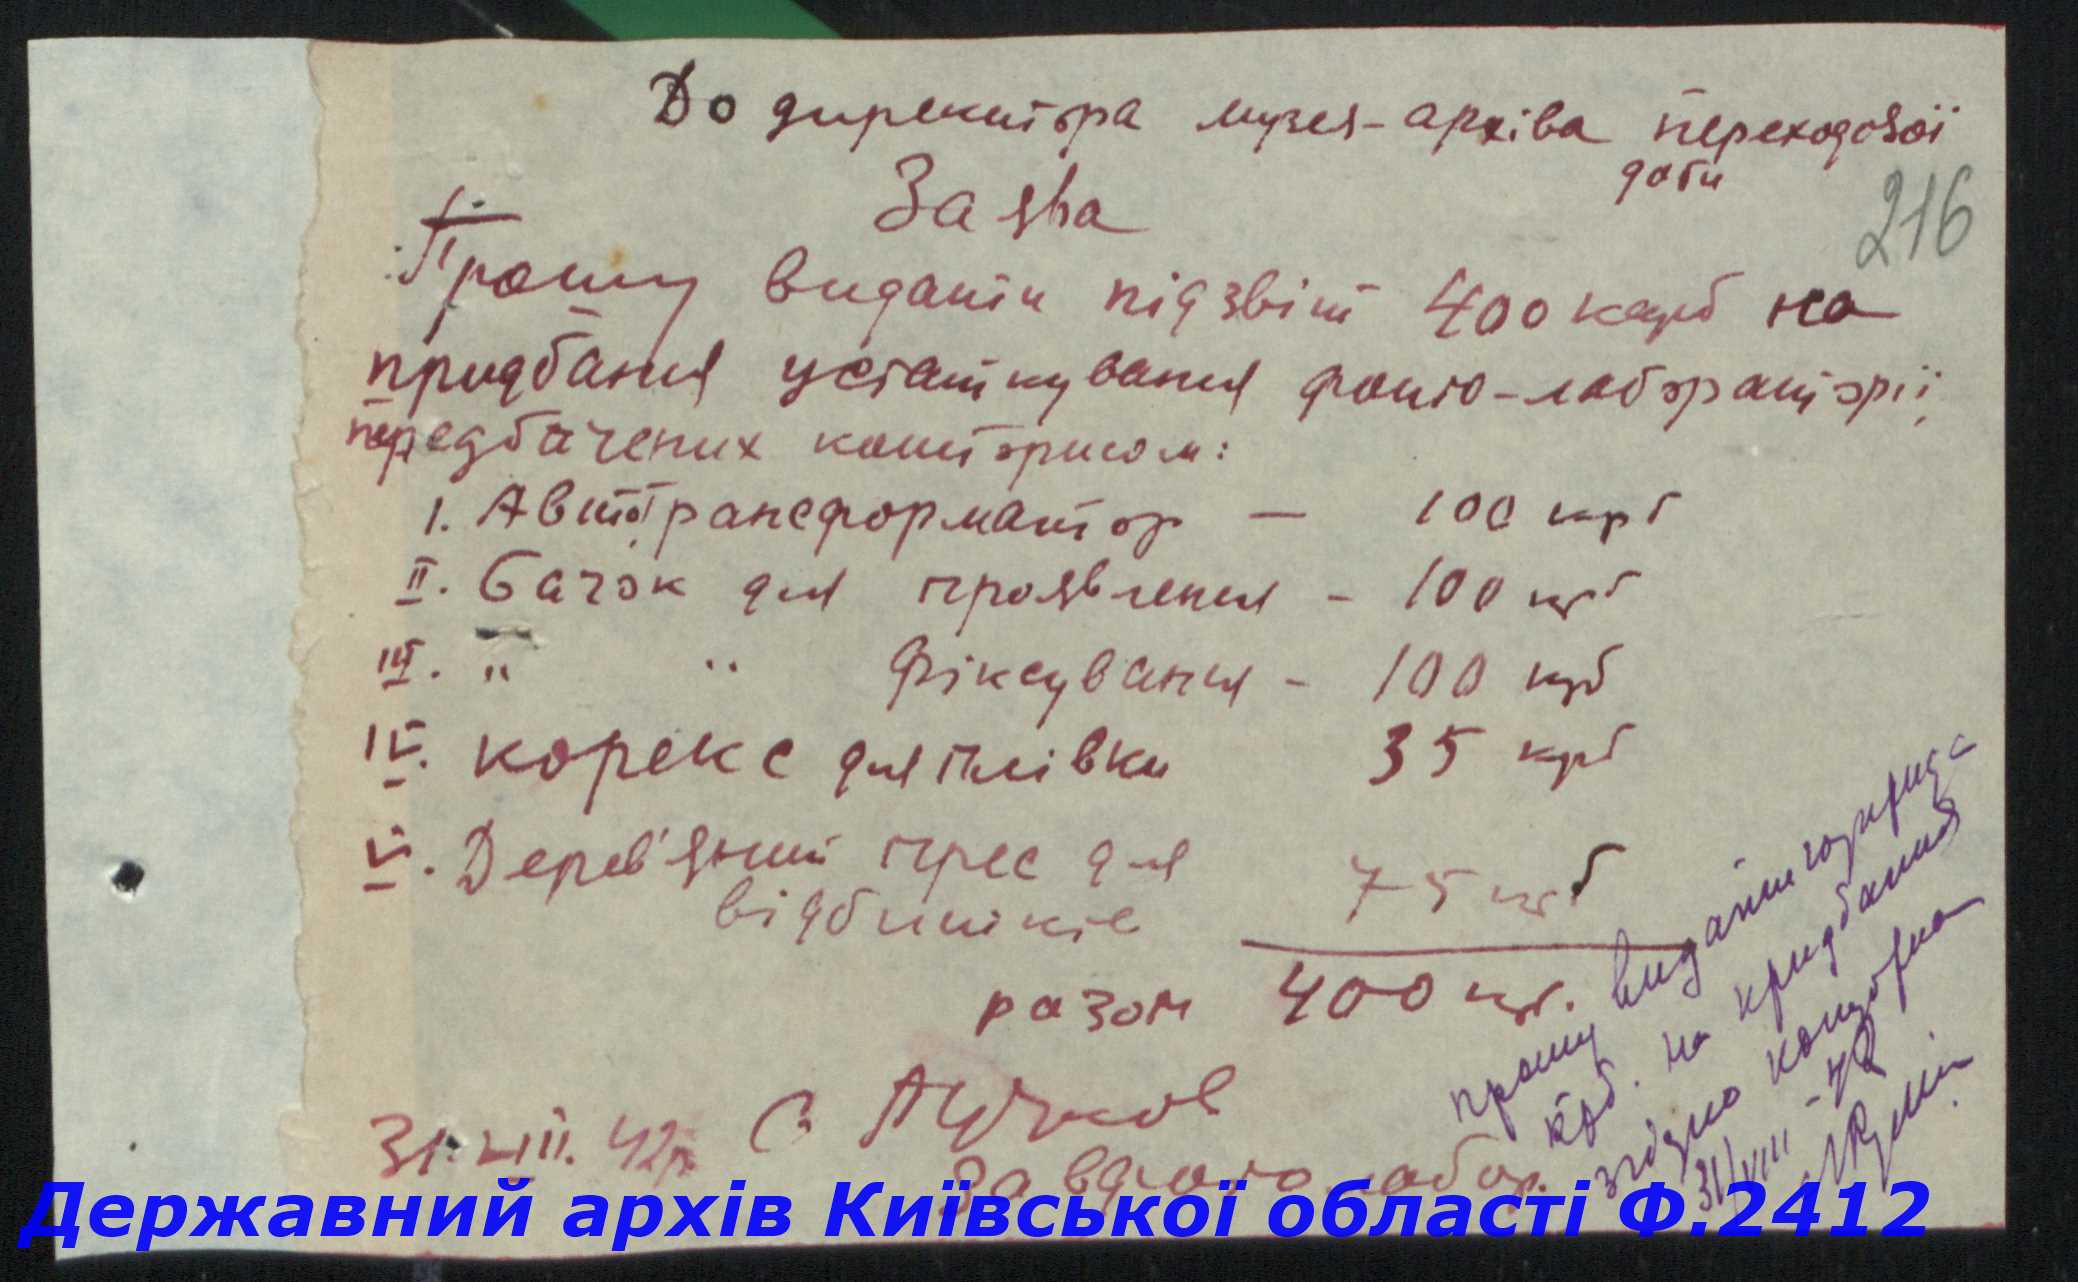 До директора музея-архіва переходової
доби
216
Заява
Прошу видати підзвіт 400 карб на
придбання устаткування фото-лабораторії,
передбачених кошторисом:
1. Автотрансформатор — 100 крб
II. Бачок для проявлення - 100 крб
III. " " фіксування - 100 крб
IV. корекс для плівки 35 крб
V. Дерев'яний прес для 75 крб
відбитків
разом 400 кр.
31.VIII.42р.
Зав фото лабор.
Прошу видати
крб. на придбання
згідно кошториса
31/VIII - 42
Державний архів Київської області Ф.2412